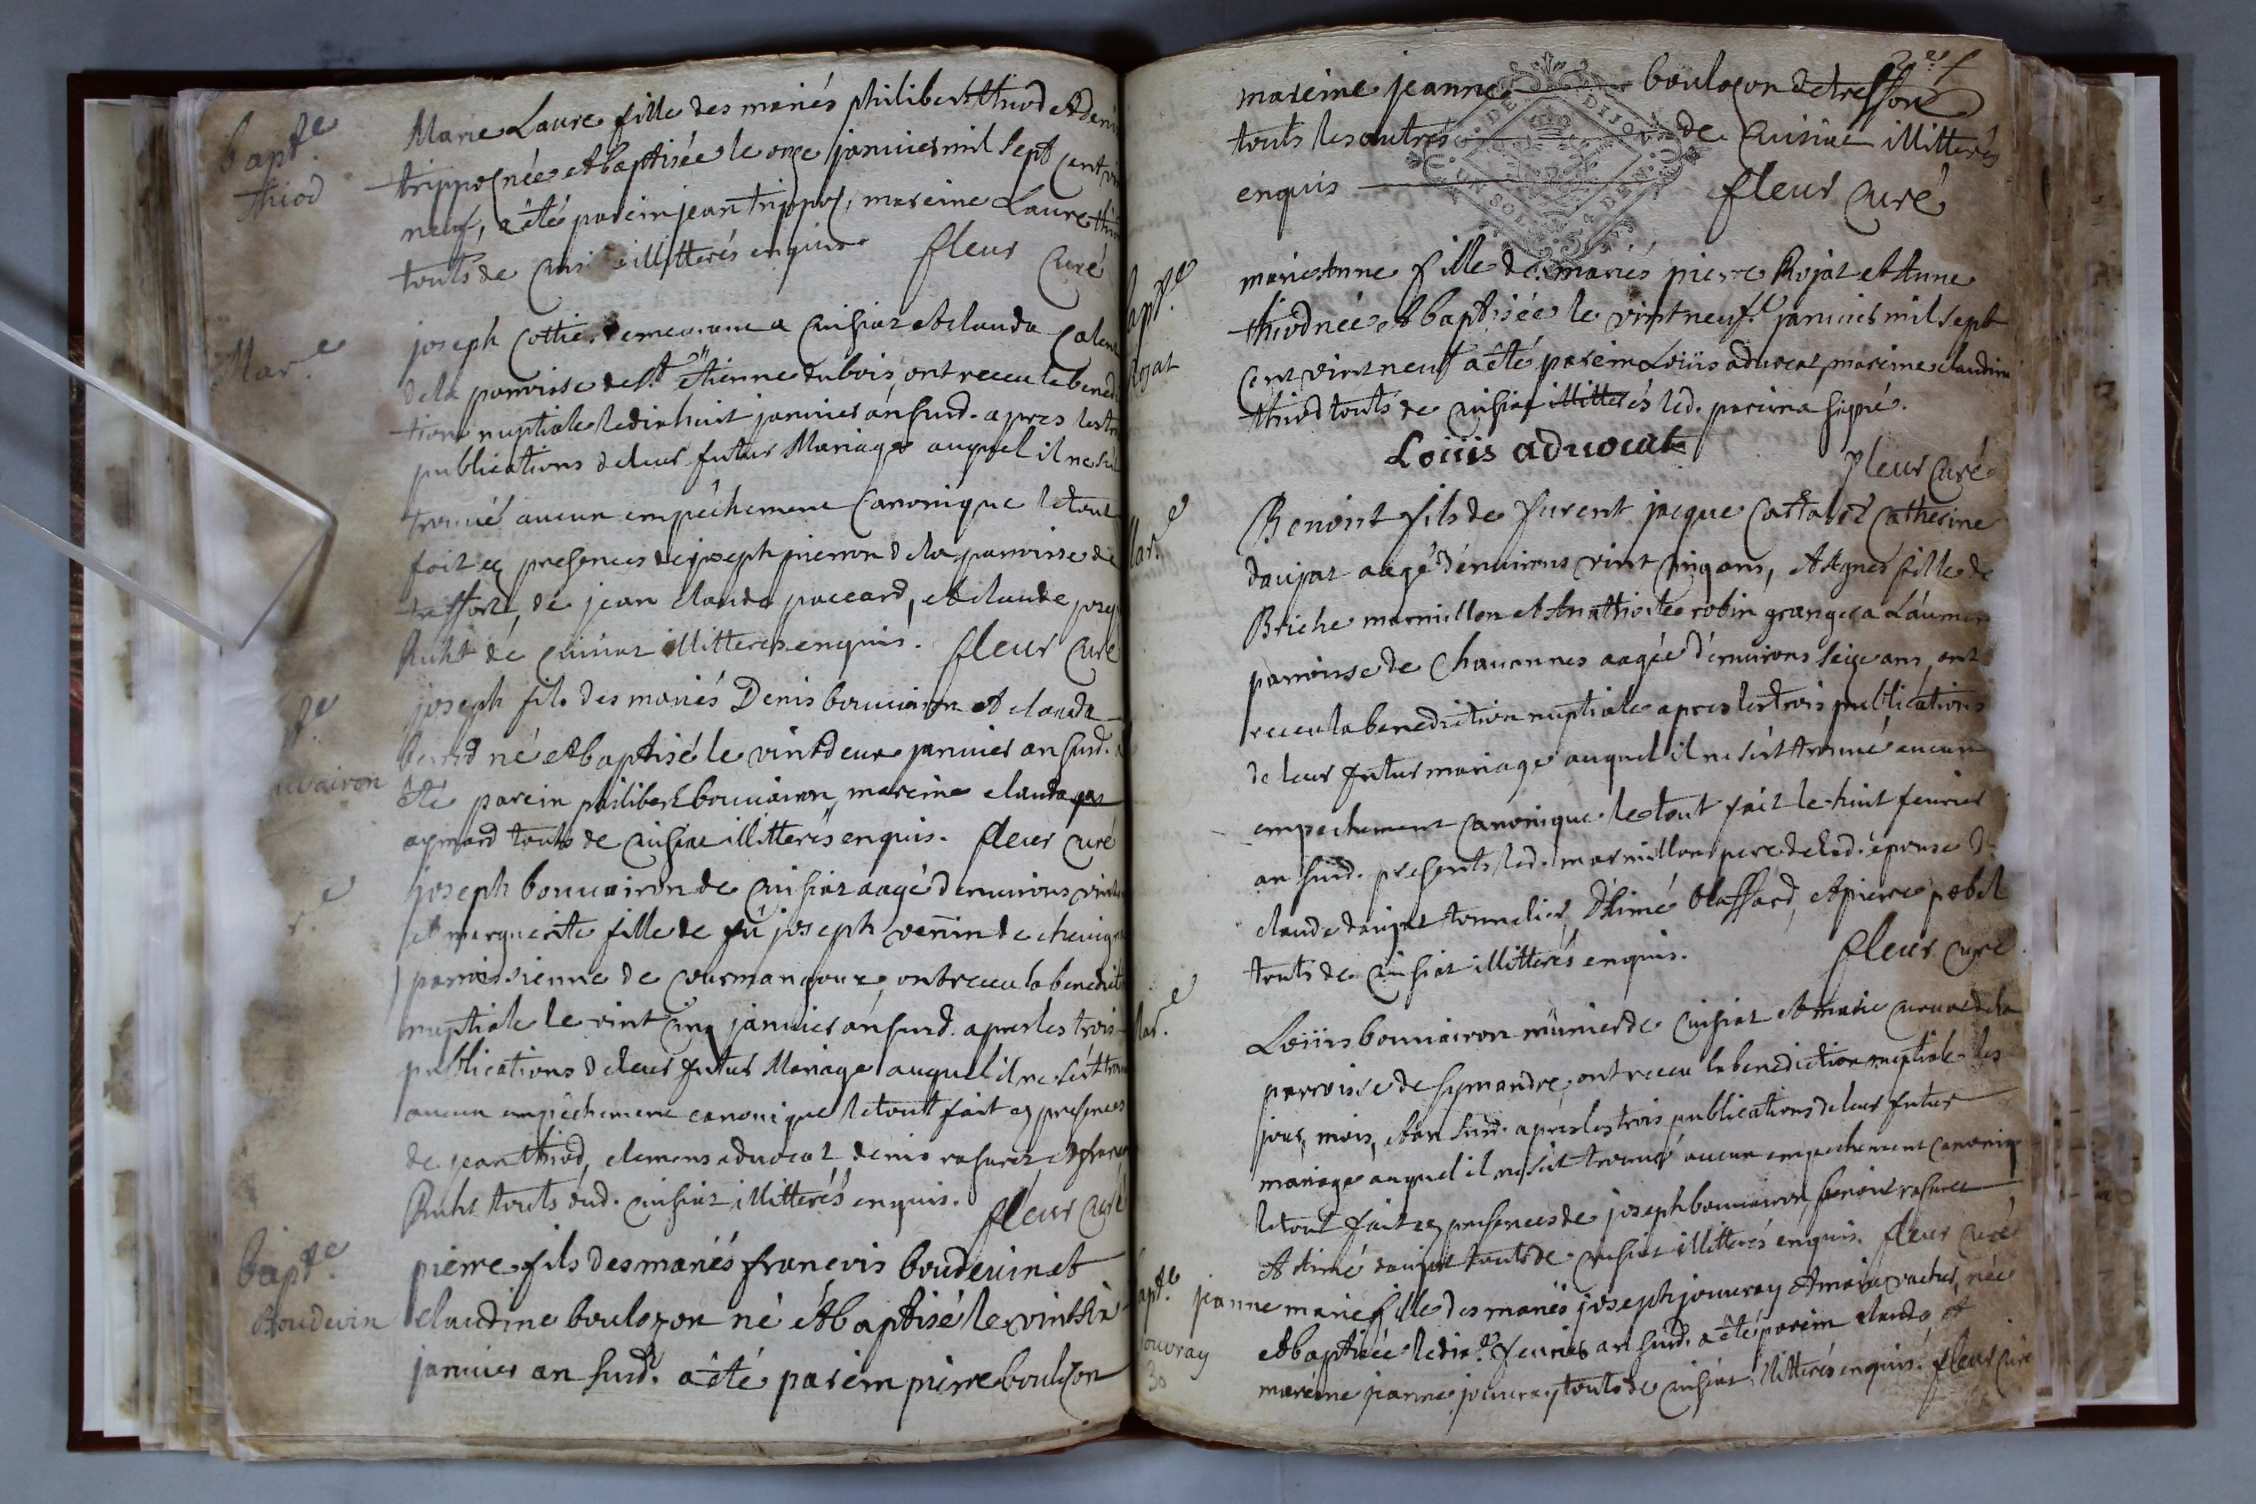 bapt.e
thiod
Marie Laure fille des mariés philibert thiod et deni
trippoz née et baptisée le onze janvier mil sept cent vin
neuf, a été parein jean trippoz, mareine Laure thio
touts de illitterés enquis fleur curé
Mar.e
joseph cottier demeurant a cuisiat et clauda
de la parroisse de st etienne du bois, ont receu la bened
tion nuptiale le dix huit janvier an susd. apres les tr
publications de leur futur Mariage auquel il ne s'e
trouvé aucun empêchement canonique le tout
fait ez presences de joseph pierron de la parroisse de
treffort, de jean claude paccard, et claude josep
Ruht de cuisiat illitteres enquis. fleur curé
t.e
uvairon
joseph fils des mariés Denis bouvairon et clauda
né et baptisé le vint deux janvier an susd. a
été parein philibert bouvairon, mareine clauda
aymard touts de cuisiat illitterés enquis. fleur curé
r.e
joseph bouvairon de cuisiat aagé d'environs vint
et marguerite fille de fû joseph venin de chevigna
parroissienne de courmangoux, ont receu la benedicti
nuptiale le vint cinq janvier an susd. apres les trois
publications de leur futur Mariage auquel il ne s'est trou
aucun empêchement canonique le tout fait ez presences
de jean thiod, clemens advocat, denis rasurez et franco
Ruht touts dud. cuisiat illitterés enquis. fleur curé
bapt.e
Boudevin
pierre fils des mariés francois boudevin et
claudine boulozon né et baptisé le vint six
janvier an susd. a été parein pierre boulozon
mareine jeanne boulozon de treffort
touts les autres de cuisiat illitterés
enquis fleur curé
DE DIJON
UN SOL 4 DEN.
bapt.e
Rojat
marie Anne fille des mariés pierre Rojat et Anne
thiod née et baptisée le vint neuf.e janvier mil sept
cent vint neuf a été parein Loüis advocat, mareine claudine
thiod touts de cuisiat illitterés led. parein a signé.
Loüis advocat
fleur curé
Mar.e
Benoist fils de furent jacque cattard et catherine
daujat aagé d'environs vint cinq ans, et Agnes fille de
Briche marmillon et Antthiostte robin granger a Láumon
parroisse de Chavannes aagée d'environs seize ans, ont
receu la benediction nuptiale apres les trois publications
de leur futur mariage auquel il ne s'est trouvé aucun
empechement canonique le tout fait le huit fevrier
an susd. presents led. marmillon pere de lad. épouse
claude daujat tonnelier, d'Aimé blaffard, et pierre pobel
touts de cuisiat illitterés enquis. fleur curé
Mar.e
Loüis bouvairon mûnier de cuisiat et marie de la
parroisse de symandre, ont receu la benediction nuptiale les
jour, mois, et an susd. apres les trois publications de leur futur
mariage auquel il ne s'est trouvé aucun empechement canoniq
le tout fait ez presences de joseph bouvairon, benoit rasurez
et Aimé daujat touts de cuisiat illitterés enquis. fleur curé
bapt.e
jouvray
30
jeanne marie fille des mariés joseph jouvray et marie vachet, née
et baptisée le dix.e fevrier an susd. a été parein claude et
mareine jeanne jouvray touts de cuisiat illitterés enquis. fleur curé